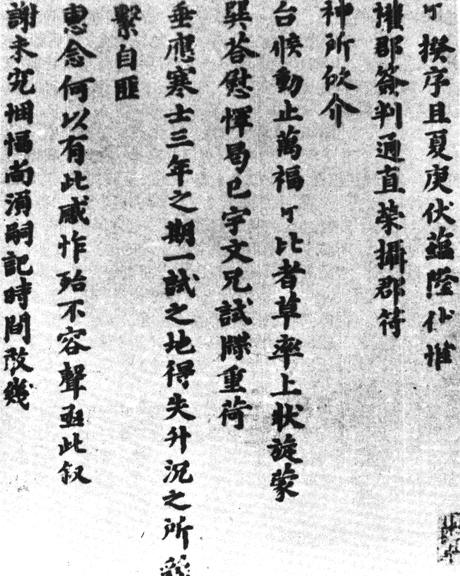 揆序且夏庚伏蘊隆伏惟
權郡簽判通直榮攝郡符
神所欣介
台候動止萬福 比者草率上狀旋蒙
巽荅慰惲曷已宇文兄試牒重荷
垂應寒士三年之期一試之地得失升沉之所
繫自匪
惠念何以有此感怍殆不容聲亟此叙
謝未究悃愊尚須嗣記時間改幾